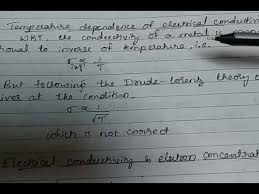 Temperature dependence of electrical conducti
WKT, the conductivity of a metal is
ional to inverse of temperature, i.e.
σ ∝ 1/T
But following the Drude-Lorentz theory
ives at the condition,
σ ∝ 1/√T
which is not correct.
Electrical conductivity & electron concentra